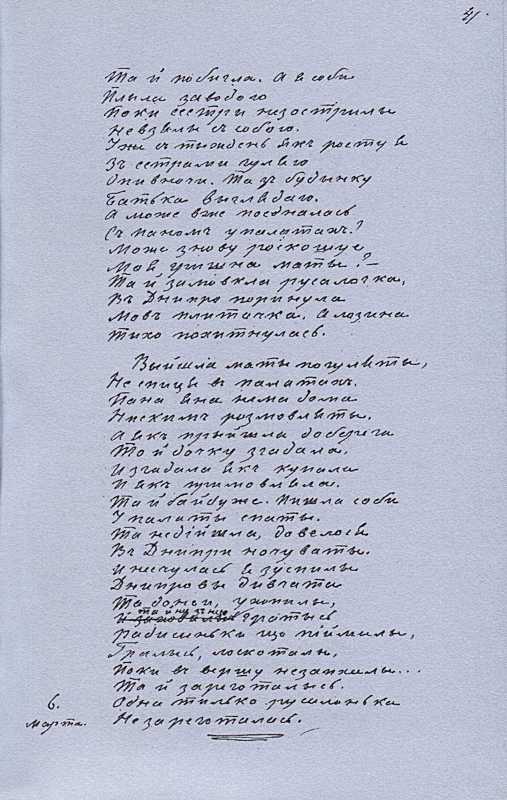 41.
Та й побигла. А я соби
Плыла за водою
Поки сестри незострилы
Невзялы съ собою.
Уже съ тыждень якъ росту я
Зъ сестрамы гуляю
Опивночи. Та зъ будынку
Батька выглядаю.
А може вже поєдналась
Съ паномъ у палатахъ?
Може знову роскошує
Моя гришна маты?—
Та й замовкла русалочка,
Въ Днипро поринула
Мовъ плиточка. А лозина
Тихо похитнулась.
Выйшла маты погуляты,
Не спиця в палатахъ.
Пана Яна нема дома
Нискимъ розмовляты.
А якъ прыйшла до берега
То й дочку згадала.
И згадала якъ купала
И якъ примовляла.
Та й байдуже. Пишла соби
У палаты спаты.
Та недійшла, довелося
Въ Днипри ночуваты.
И нечулась я зуспилы
Днипровы дивчата
Та до неи, ухопилы,
та й ну зъ нею
гратысь
Радисиньки що піймалы,
Гралысь, лоскоталы,
Поки въ вершу незапхалы...
Та й зареготалысь.
Одна тилько русалонька
Не зареготалась.
6.
Марта.